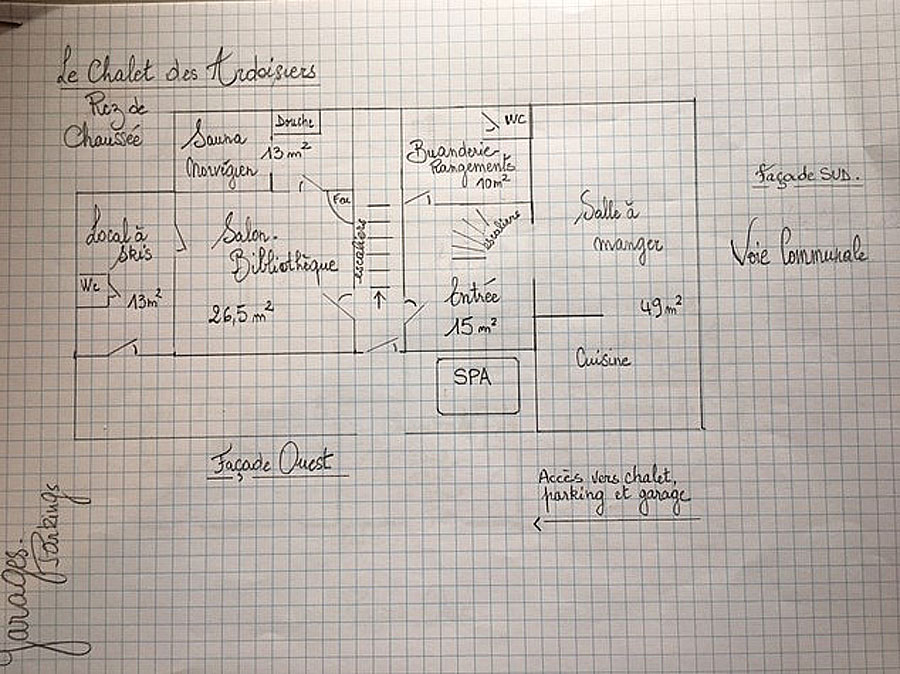 Le Chalet des Ardoisiers
Rez de
Chaussée
Sauna
Norvégien
Douche
13 m²
WC
Buanderie-
Rangements
10 m²
Façade SUD.
Voie Communale
Local à
skis
WC
13 m²
Salon.
Bibliothèque
26,5 m²
escaliers
escaliers
Entrée
15 m²
Salle à
manger
49 m²
Cuisine
SPA
Façade Ouest
Accès vers chalet,
parking et garage
Garages.
Parkings